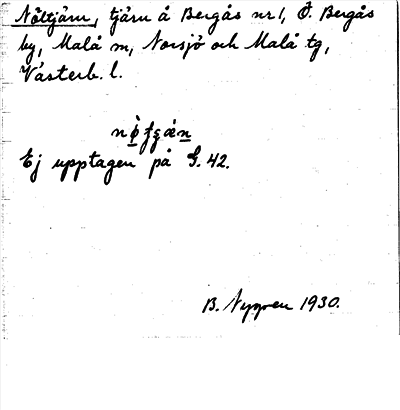 Nöttjärn, tjärn å Bergås nr 1, Ö. Bergås
by, Malå sn, Norsjö och Malå tg,
Västerb. l.
Ej upptagen på G. 42.
B. Nygren 1930.